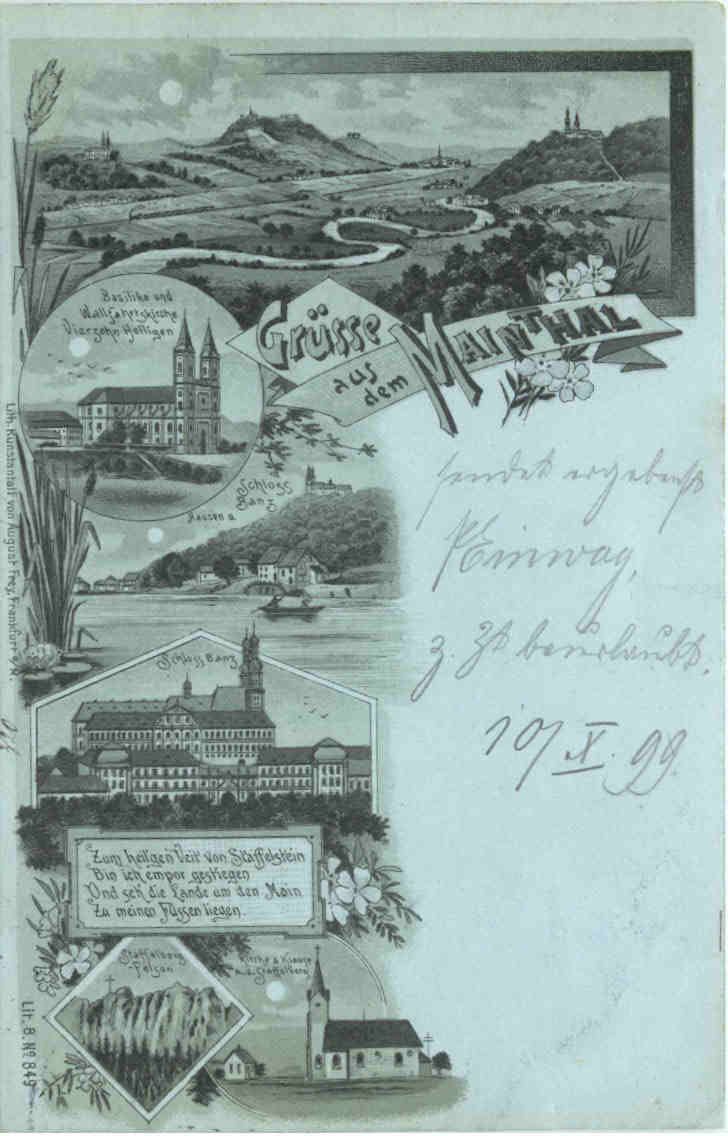 Grüsse
aus
dem
MAINTHAL
Basilike und
Wallfahrtskirche
Vierzehn Heiligen
Schloss
Banz
Hausen a.
Schloss Banz
sendet ergebenst
Einwag,
z. Zt beurlaubt.
10/IX. 99.
Zum heilgen Veit von Staffelstein
Bin ich empor gestiegen
Und seh die Lande um den Main
Zu meinen Füssen liegen.
Staffelberg
-Felsen
Kirche u Klause
a. d. Staffelberg
Lith. Kunstanstalt von August Frey, Frankfurt a/M.
Lit. B. No 849